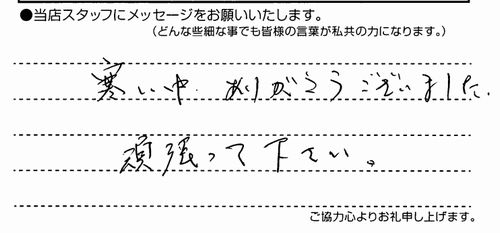 ●当店スタッフにメッセージをお願いいたします。
(どんな些細な事でも皆様の言葉が私共の力になります。)
寒い中、ありがとうございました。
頑張って下さい。
ご協力心よりお礼申し上げます。